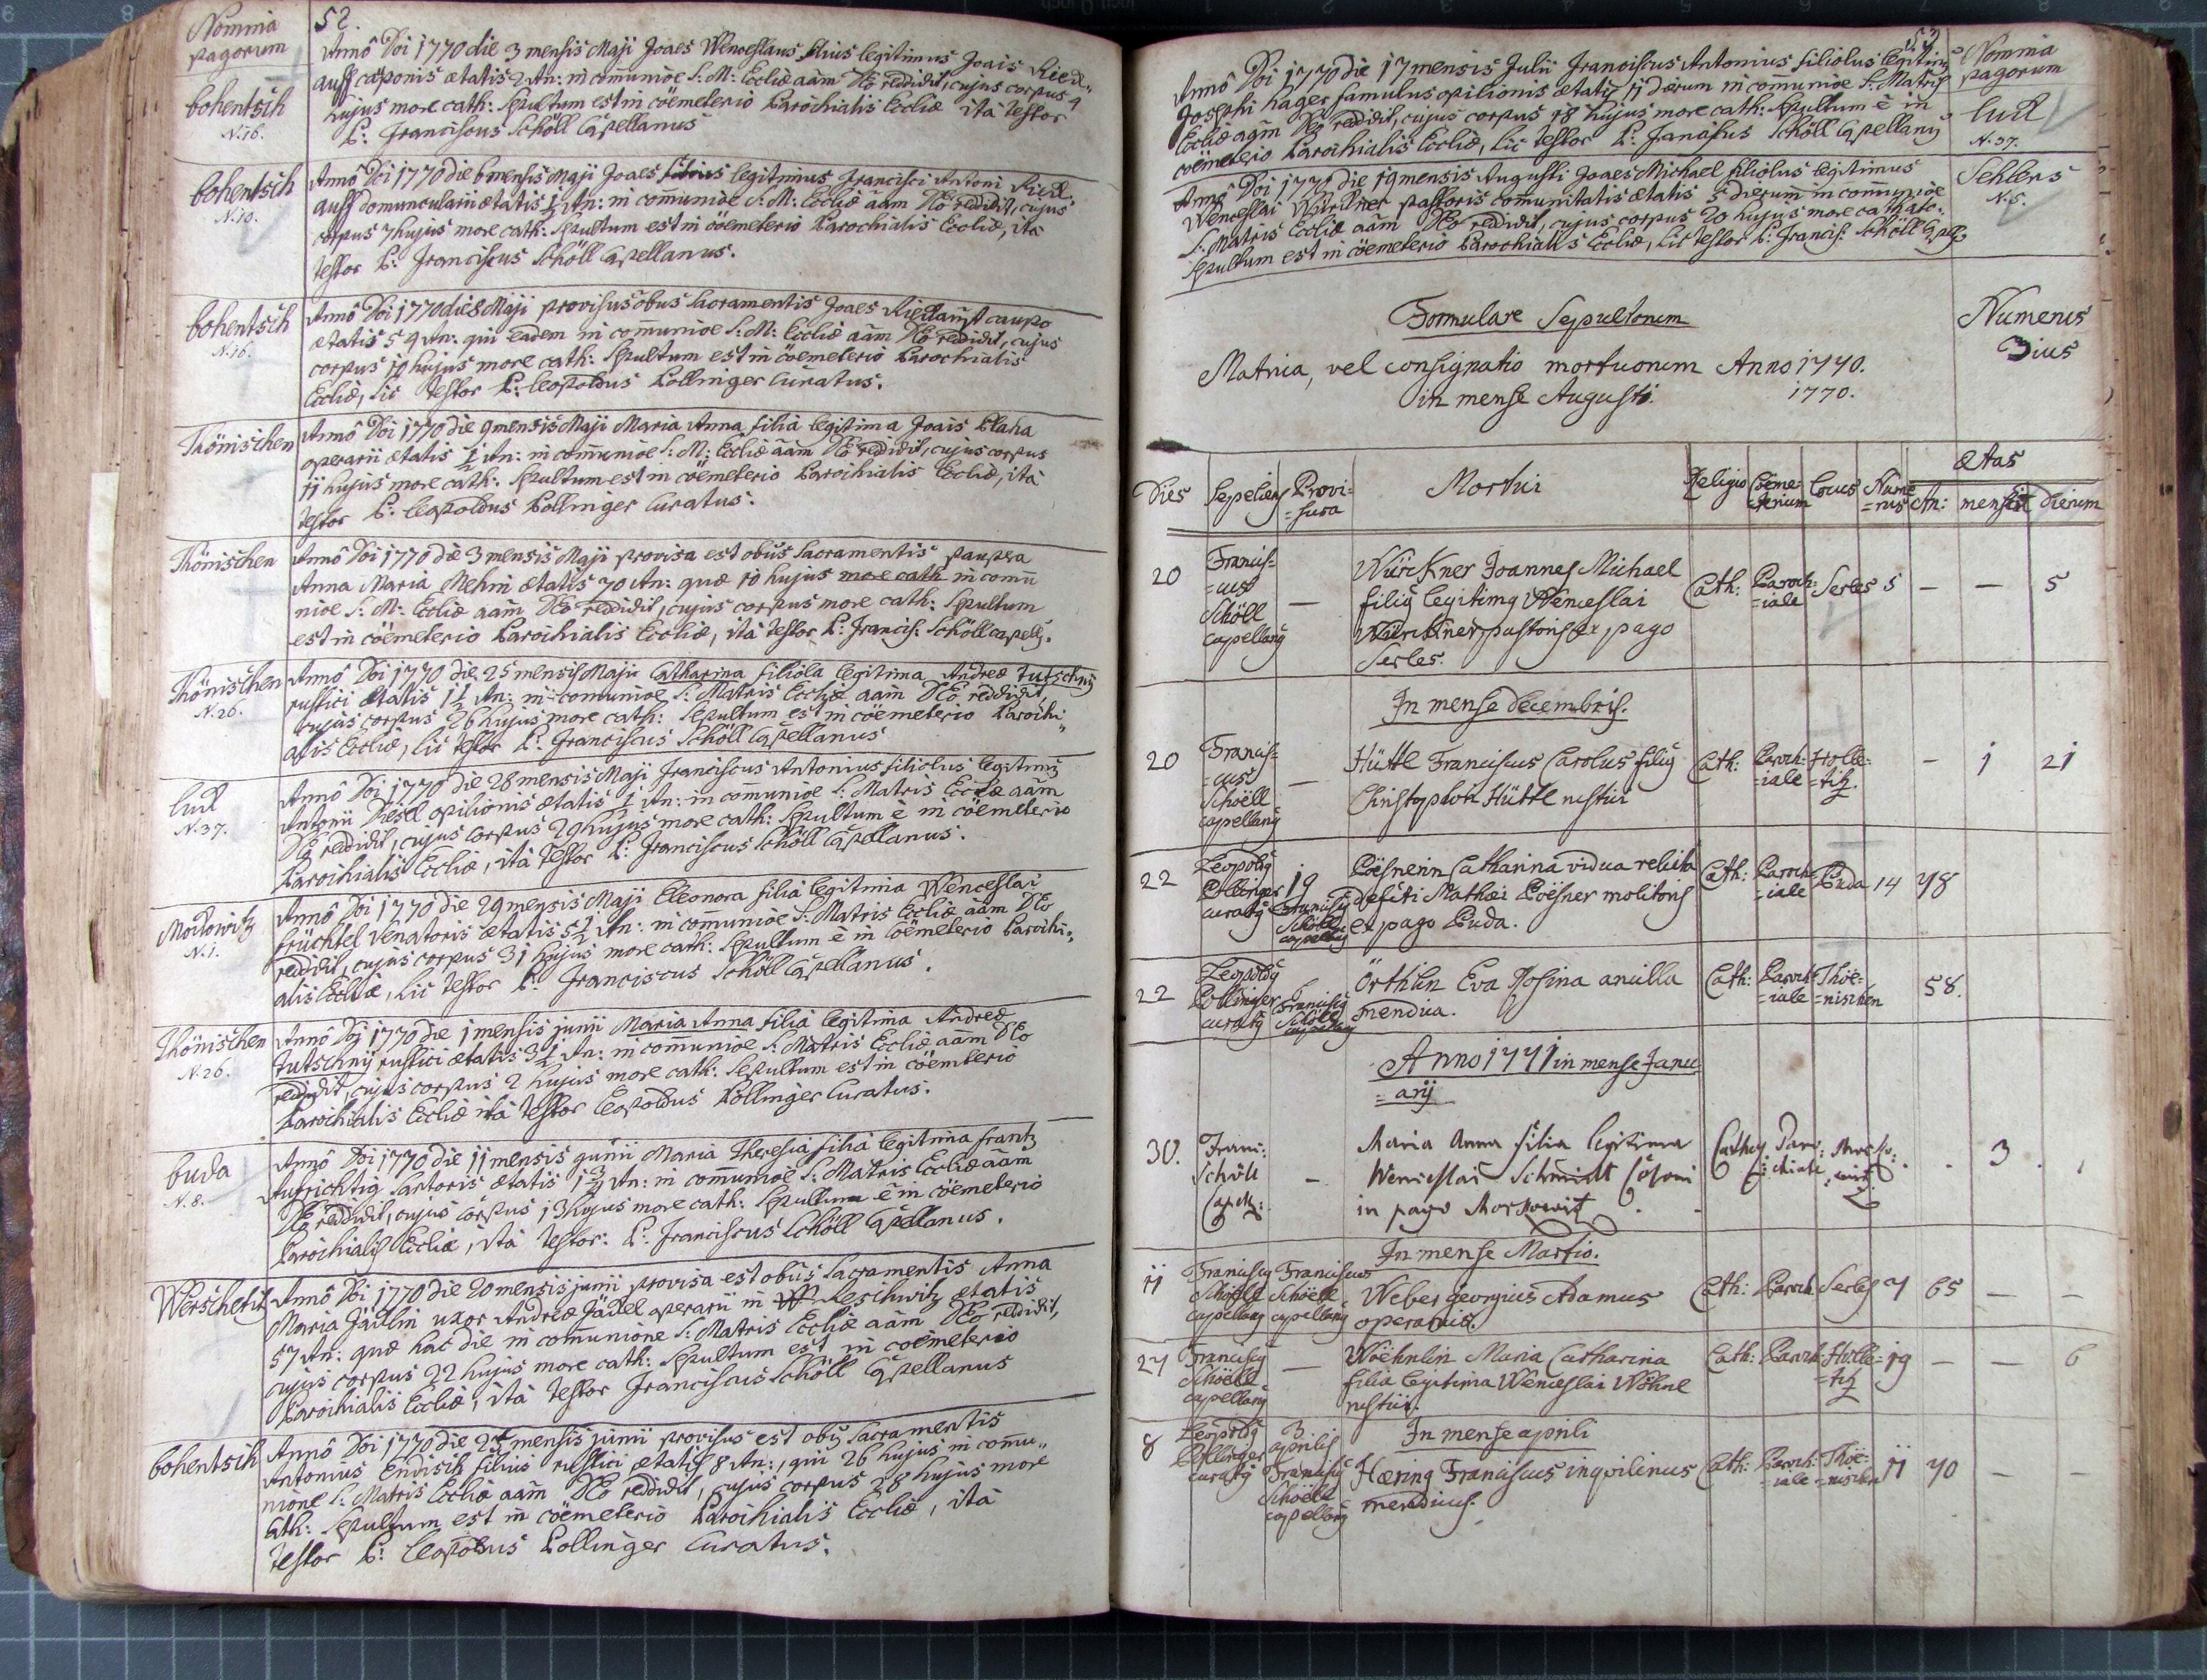 Nomina
pagorum
52.
bohentsch
N. 16.
Annô Dni 1770 die 3 mensis Maji Joaes Wenceslaus filius legitimus Joais Ried„
auss cauponis ætatis 2 An: in comunioe S: M: Eccliæ aam Deo reddidit, cujus corpus 4
hujus more cath: Sepultum est in cöemeterio Parochialis Eccliæ ita testor
P: Franciscus Schöll Capellanus
bohentsch
N. 10.
Annô Dni 1770 die 6 mensis Maji Joaes filius legitimus Francisci Antoni Ried„
auss domuncularii ætatis ½ An: in comunioe S: M: Eccliæ aam Deo reddidit, cujus
corpus 7 hujus more cath: Sepultum est in cöemeterio Parochialis Eccliæ, ita
testor P: Franciscus Schöll Capellanus.
bohentsch
N. 16.
Annô Dni 1770 die 8 Maji provisus obus Sacramentis Joaes caupo
ætatis 54 An: qui eadem in comunioe S: M: Eccliæ aam Deo reddidit, cujus
corpus 10 hujus more cath: Sepultum est in cöemeterio Parochialis
Eccliæ, sic testor P: Leopoldus Pollinger Curatus.
Thönischen
Annô Dni 1770 die 9 mensis Maji Maria Anna filia legitima Joais Blaha
operarii ætatis ½ An: in comunioe S: M: Eccliæ aam Deo reddidit, cujus corpus
11 hujus more cath: Sepultum est in cöemeterio Parochialis Eccliæ, ita
testor P: Leopoldus Pollinger Curatus.
Thönischen
Annô Dni 1770 die 3 mensis Maji provisa est obus Sacramentis paupera
Anna Maria Mehni ætatis 70 An: quæ 10 hujus more cath in comu
nioe S: M: Eccliæ aam Deo reddidit, cujus corpus more cath: Sepultum
est in cöemeterio Parochialis Eccliæ, ita testor P: Francis: Schöll capell.
Thönischen
N. 26.
Annô Dni 1770 die 25 mensis Maji Catharina filiola legitima Andreæ Tutschny
rustici ætatis 1½ An: in comunioe S: Matris Eccliæ aam Deo reddidit,
cujus corpus 26 hujus more cath: Sepultum est in cöemeterio Parochi„
alis Eccliæ, sic testor P: Franciscus Schöll Capellanus
lud
N. 37.
Annô Dni 1770 die 28 mensis Maji Franciscus Antonius filiolus legitimus
Antonii Diesel opilionis ætatis ½ An: in comunioe S: Matris Eccliæ aam
Deo reddidit, cujus corpus 29 hujus more cath: Sepultum è in cöemeterio
Parochialis Eccliæ, ita testor P: Franciscus Schöll Capellanus.
N. 1.
Annô Dni 1770 die 29 mensis Maji Eleonora filia legitima Wenceslai
früchtel venatoris ætatis 5½ An: in comunioe S: Matris Eccliæ aam Deo
reddidit, cujus corpus 31 hujus more cath: Sepultum è in cöemeterio Parochi„
alis Eccliæ, sic testor P: Franciscus Schöll Capellanus.
Thönischen
N. 26.
Annô Dni 1770 die 1 mensis junii Maria Anna filia legitima Andreæ
Tutschny rustici ætatis 3½ An: in comunioe S: Matris Eccliæ aam Deo
reddidit, cujus corpus 2 hujus more cath: Sepultum est in cöemterio
Parochialis Eccliæ ita testor Leopoldus Pollinger Curatus.
buda
N. 8.
Annô Dni 1770 die 11 mensis junii Maria Theresia filia legitima frantz
Aufrichtig Sartoris ætatis 1¾ An: in comunioe S: Matris Eccliæ aam
Deo reddidit, cujus corpus 13 hujus more cath: Sepultum è in cöemeterio
Parochialis Eccliæ, ita testor: P: Franciscus Schöll Capellanus.
Werschetitz
Annô Dni 1770 die 20 mensis junii provisa est obus Sacramentis Anna
Maria Jäcklin uxor Andreæ Jäckel operarii in W Reschwitz ætatis
57 An: quæ hac die in comunione S: Matris Eccliæ aam Deo reddidit,
cujus corpus 22 hujus more cath: Sepultum est in coemeterio
Parochialis Eccliæ, ita testor Franciscus Schöll Capellanus
bohentsch
Annô Dni 1770 die 25 mensis junii provisus est obus Sacramentis
Antonius Endisch filius rustici ætatis 8 An:, qui 26 hujus in comu„
nione S: Matris Eccliæ aam Deo reddidit, cujus corpus 28 hujus more
Cath: Sepultum est in cöemeterio Parochialis Eccliæ, ita
testor P: Leopoldus Pollinger Curatus.
53
Nomina
pagorum
Annô Dni 1770 die 17 mensis Julii Franciscus Antonius filiolus legitimus
Josephi hager famulus opilionis ætatis 11 dierum in comunioe S: Matris
Eccliæ aam Deo reddidit, cujus corpus 18 hujus more cath: Sepultum è in
cöemeterio Parochialis Eccliæ, sic testor P: Franciscus Schöll Capellanus
lud
N. 37.
Annô Dni 1770 die 19 mensis Augusti Joaes Michael filiolus legitimus
Wenceslai Würckner pastoris comunitatis ætatis 5 dierum in comunioe
S: Matris Eccliæ aam Deo reddidit, cujus corpus 20 hujus more catholc:
Sepultum est in cöemeterio Parochialis Eccliæ, sic testor P: Francis: Schöll Capell:
Sehlers
N. 5.
Formulare Sepultorum
Numerus
3ius
Matrica, vel consignatio mortuorum Anno 1770.
in mense Augusti. 1770.
Dies Sepeliens Provi=sura Mortui Religio Cöeme=terium Locus Nume=rus Ætas
An: mensium Dierum
20 Francis=cus Schöll capellanus — Würckner Joannes Michael Cath: Paroch:=iale Serles 5 — — 5
filius legitimus Wenceslai
Würckner pastoris ex pago
Serles.
In mense Decembris.
20 Francis=cus Schöell capellanus — Hüttl Franciscus Carolus filius Cath: Paroch:=iale Holle=titz. — 1 21
Christophori Hüttl rustici
22 Leopoldus Pollinger curatus 19 Franciscus Schöll capellanus Pöesnerin Catharina vidua relicta Cath: Paroch=iale Buda 14 78
defuncti Mathæi Pöesner molitoris
ex pago Buda.
22 Leopoldus Pollinger curatus Franciscus Schöll capellanus Örthlin Eva Rosina ancilla Cath: Paroch=iale Thöe=nischen 58.
mendica.
Anno 1771 in mense Janu
=arij
30. Franc: Schöll Capell: — Maria Anna filia legitima 3
Wenceslai Schmidt
in pago
In mense Martio.
11 Franciscus Schöell capellanus Franciscus Schöell capellanus Weber Georgius Adamus Cath: Paroch: Serles 7 65 — —
operarius.
27 Franciscus Schöell capellanus — Wöehnlin Maria Catharina Cath: Paroch Holle=titz 19 — — 6
filia legitima Wenceslai Wöhnl
rustici.
In mense aprili
8 Leopoldus Pollinger curatus 3 aprilis Franciscus Schöell capellanus Hæring Franciscus inquilinus Cath: Paroch:=iale Thöe=nischen 11 70 — —
mendicus.